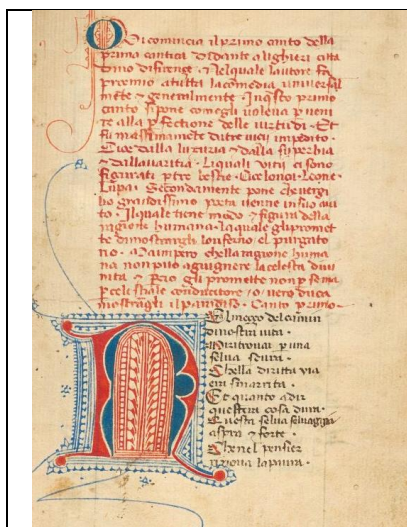 Qui comincia il primo canto della
prima cantica di dante alighieri citta
dino di firençe · Nel quale lautore fa
proemio a tutta la comedia universal
mēte & generalmente · In questo primo
canto si pone come gli voleva p(er) veni
te alla p(er)fectione delle virtudi · Et
fu massimamete da tre vicij impedito ·
Cioe dalla luxuria & dalla superbia
& dallavaritia · Li quali vitij ci sono
figurati p(er) tre bestie · Cioe lonça · Leone ·
Lupa · Secondamente pone che vergi
lio grandissimo poeta venne in suo aiu
to · Il quale tiene modo & figura della
ragione humana · la quale gli promet
te di mostrargli lonferno, el purgato
rio ·
ragione huma
na non puo agiugnere la celesta divi
nita &
gli promette
p celestiale conducitore · o vero duca
mostrargli il paradiso · Canto primo ·
NEl meço del camin
di nostra vita ·
Mi ritrovai p una
selva scura ·
Chella diritta via
era smarrita ·
Et quanto a dir
quellera cosa dura ·
Questa selva selvaggia
aspra & forte ·
Che nel pensier
rinova la paura ·